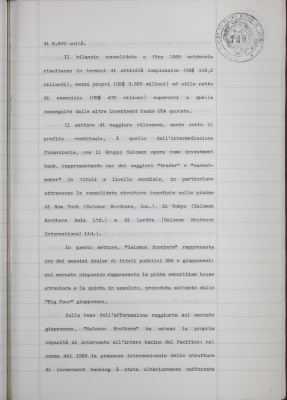 di 8.900 unità.
Il bilancio consolidato a fine 1989 evidenzia
risultanze in termini di attività complessive (US$ 118,2
miliardi), mezzi propri (US$ 3.565 milioni) ed utile netto
di esercizio (US$ 470 milioni) superiori a quelle
conseguite dalle altre investment banks USA quotate.
Il settore di maggior rilevanza, anche sotto il
profilo reddituale, è quello dell'intermediazione
finanziaria, ove il Gruppo Salomon opera come investment
bank, rappresentando uno dei maggiori "trader" e "market-
maker" in titoli a livello mondiale, in particolare
attraverso le consolidate strutture insediate sulle piazze
di New York (Salomon Brothers, Inc.), di Tokyo (Salomon
Brothers Asia Ltd.) e di Londra (Salomon Brothers
International Ltd.).
In questo settore, "Salomon Brothers" rappresenta
uno dei massimi dealer di titoli pubblici USA e giapponesi:
sul mercato nipponico rappresenta la prima securities house
straniera e la quinta in assoluto, preceduta soltanto dalle
"Big Four" giapponesi.
Sulla base dell'affermazione raggiunta sul mercato
giapponese, "Salomon Brothers" ha esteso la propria
capacità di intervento all'intero bacino del Pacifico: nel
corso del 1989 la presenza internazionale delle strutture
di investment banking è stata ulteriormente rafforzata